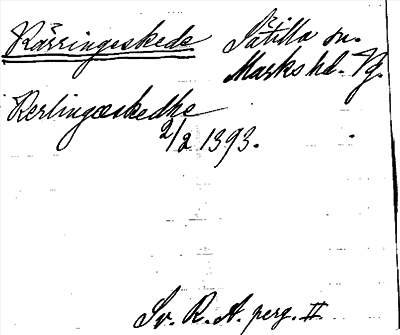 Kärringeskede Sätilla sn.
Marks hd. Vg.
Kerlingæskedhe
2/2 1393.
Sv. R. A. perg. II